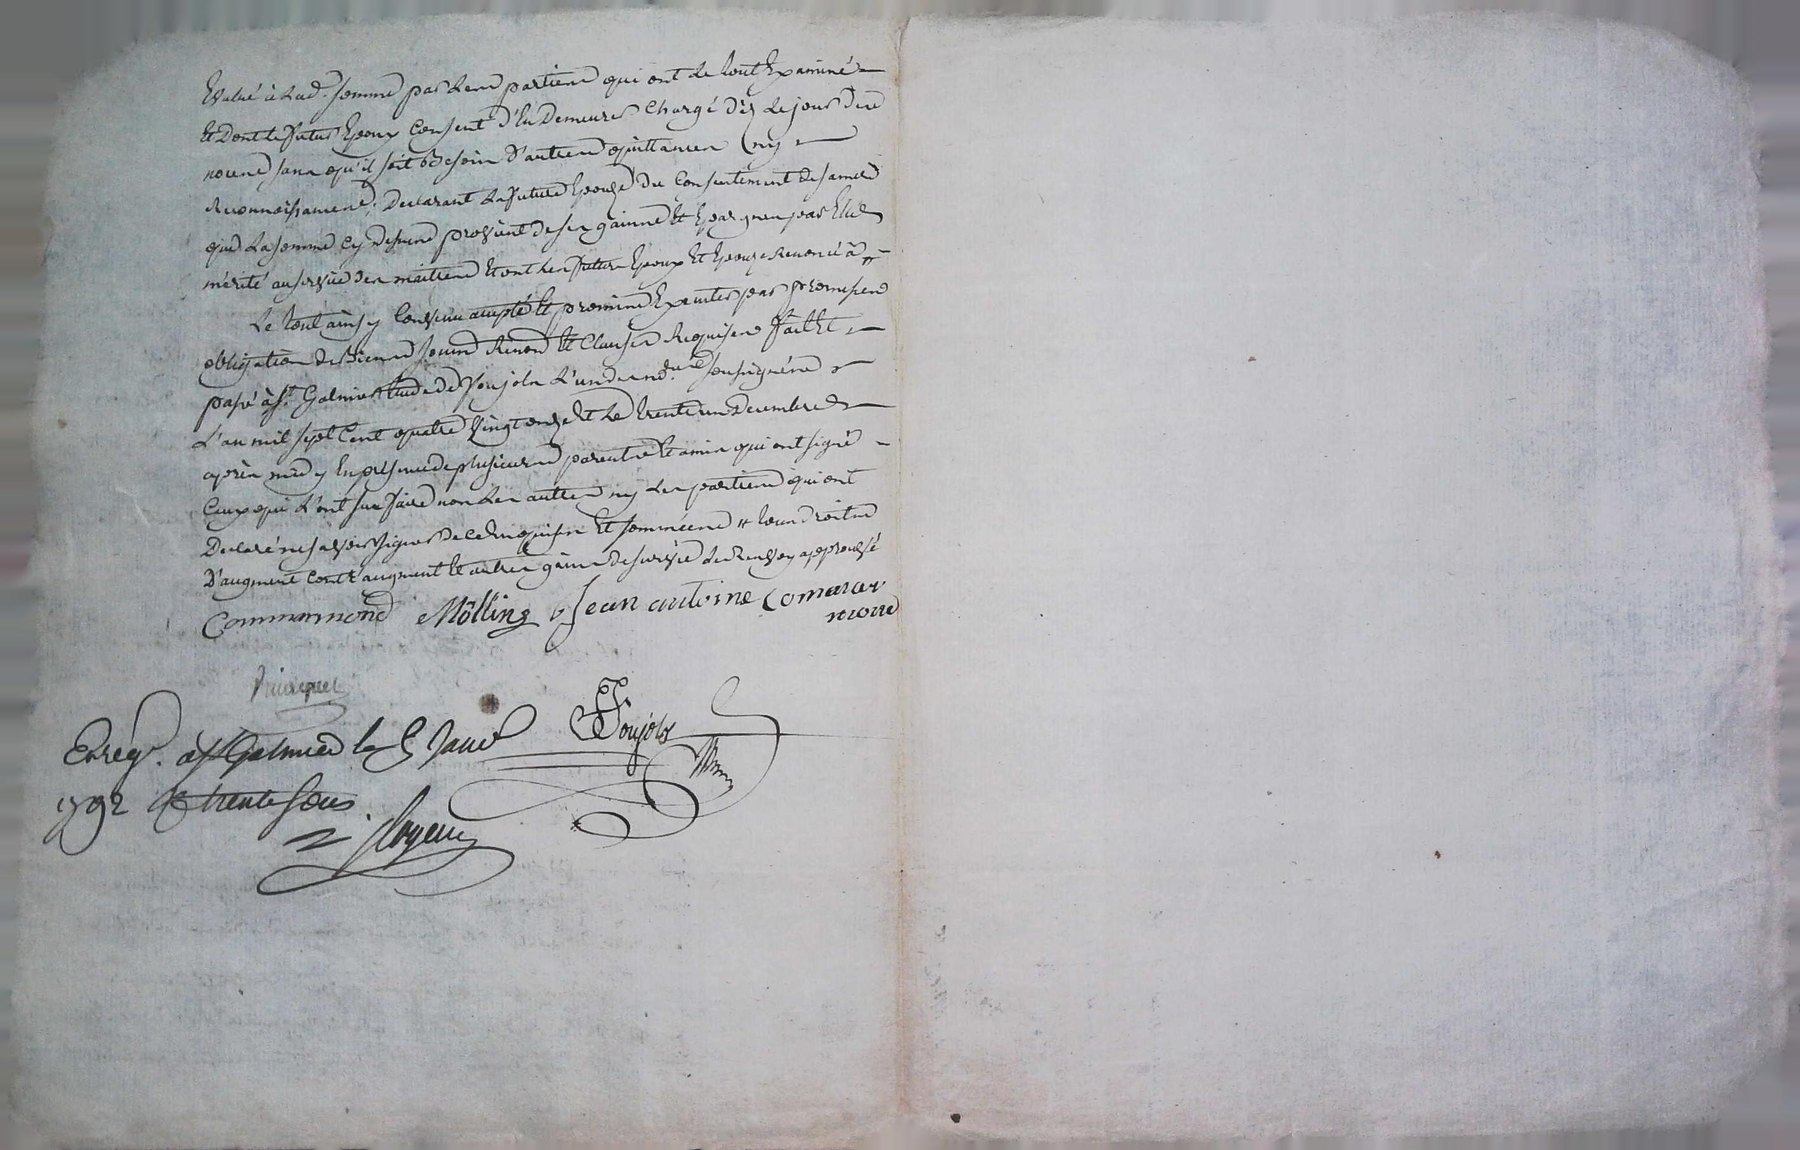 Evalué à lad. somme par les parties qui ont le tout Examiné
Et Dont le futur Epoux Consent d'En Demeurer Chargé Dès le jour des
noces sans qu'il soit Besoin d'autres quittances ny
Reconnoissances, Declarant la future Epouse du Consentement de sa mere
que la somme Cy dessus provient de ses gaines Et Epargnes par Elle
mérité au service des maitres Et ont les futurs Epoux Et Epouse Renoncé à
Le tout ainsy Convenu accepté Et promis Executer par promesses
obligation de Biens soumis Renon Et Clauses Requises fait Et
passé à St. Galmier Etude de Poujols l'un des nores soussignés
L'an mil sept Cent quatre vingt onze Et le trente un Decembre
après midy En presence de plusieurs parents Et amis qui ont signé
Ceux qui l'ont sçu faire non les autres ny les parties qui ont
Declaré ne savoir signer de ce Enquises Et sommées # tous droits
D'augment Contr augment Et autres gains de survie le Renvoy approuvé
Commarmond Mölling Jean antoine Comarmond
Enregr. à St Galmier le 5 Janvr
1792 Rt trente sous
Poujols